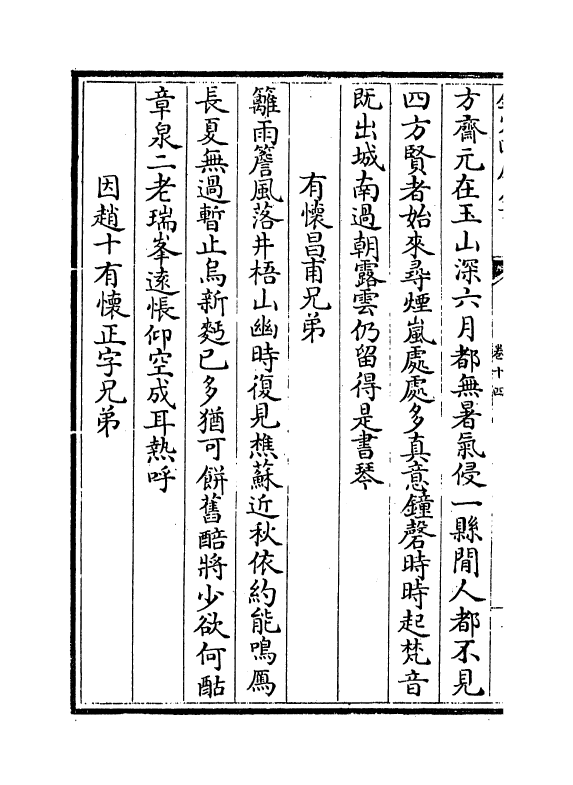 卷十四
方齋元在玉山深六月都無暑氣侵一縣閒人都不見
四方賢者始來尋煙嵐處處多真意鐘磬時時起梵音
既出城南過朝露雲仍留得是書琴
有懷昌甫兄弟
籬雨簷風落井梧山幽時復見樵蘇近秋依約能鳴鴈
長夏無過暫止烏新麪已多猶可餅舊醅將少欲何酤
章泉二老瑞峯逺悵仰空成耳熱呼
因趙十有懷正字兄弟